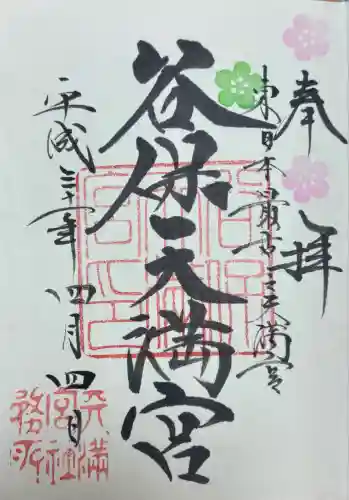 奉拝
東日本最古之天満宮
谷保天満宮
平成三十年四月四日
天満宮社務所